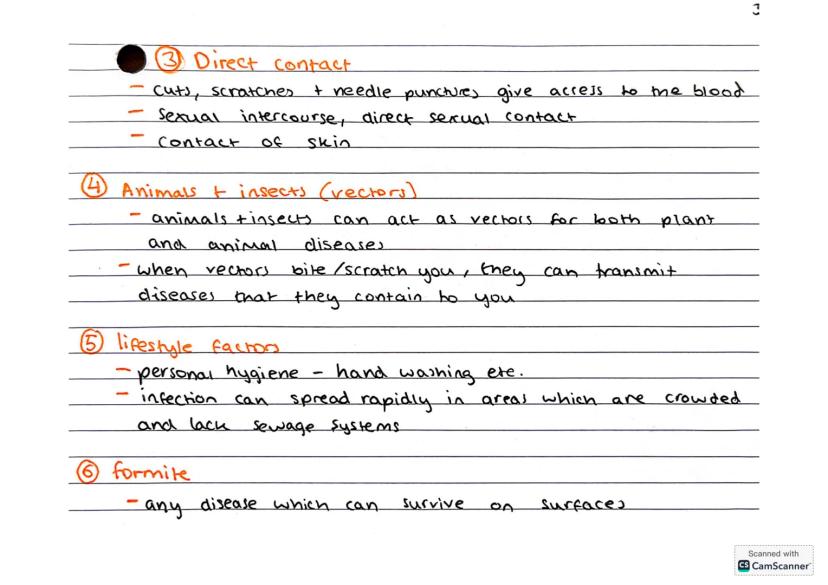 3
③ Direct contact
- cuts, scratches + needle punctures give access to the blood
- sexual intercourse, direct sexual contact
- contact of skin
④ Animals + insects (vectors)
- animals + insects can act as vectors for both plant
and animal diseases
- when vectors bite/scratch you, they can transmit
diseases that they contain to you
⑤ lifestyle factors
- personal hygiene - hand washing etc.
- infection can spread rapidly in areas which are crowded
and lack sewage systems
⑥ formite
- any disease which can survive on surfaces
Scanned with
CS CamScanner